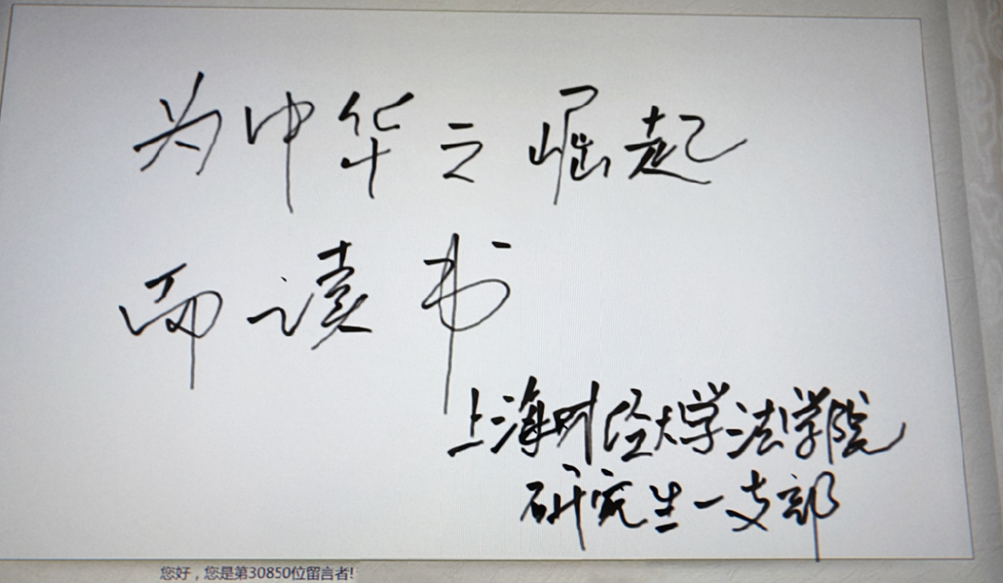 为中华之崛起
而读书
上海财经大学法学院
研究生一支部
您好，您是第30850位留言者!